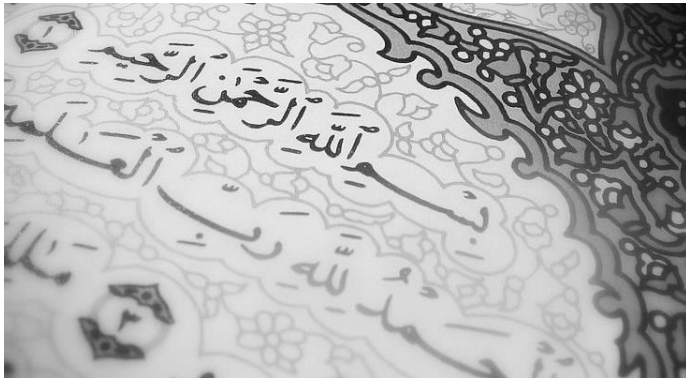 بِسْمِ ٱللَّهِ ٱلرَّحْمَٰنِ ٱلرَّحِيمِ ١
ٱلْحَمْدُ لِلَّهِ رَبِّ
٢